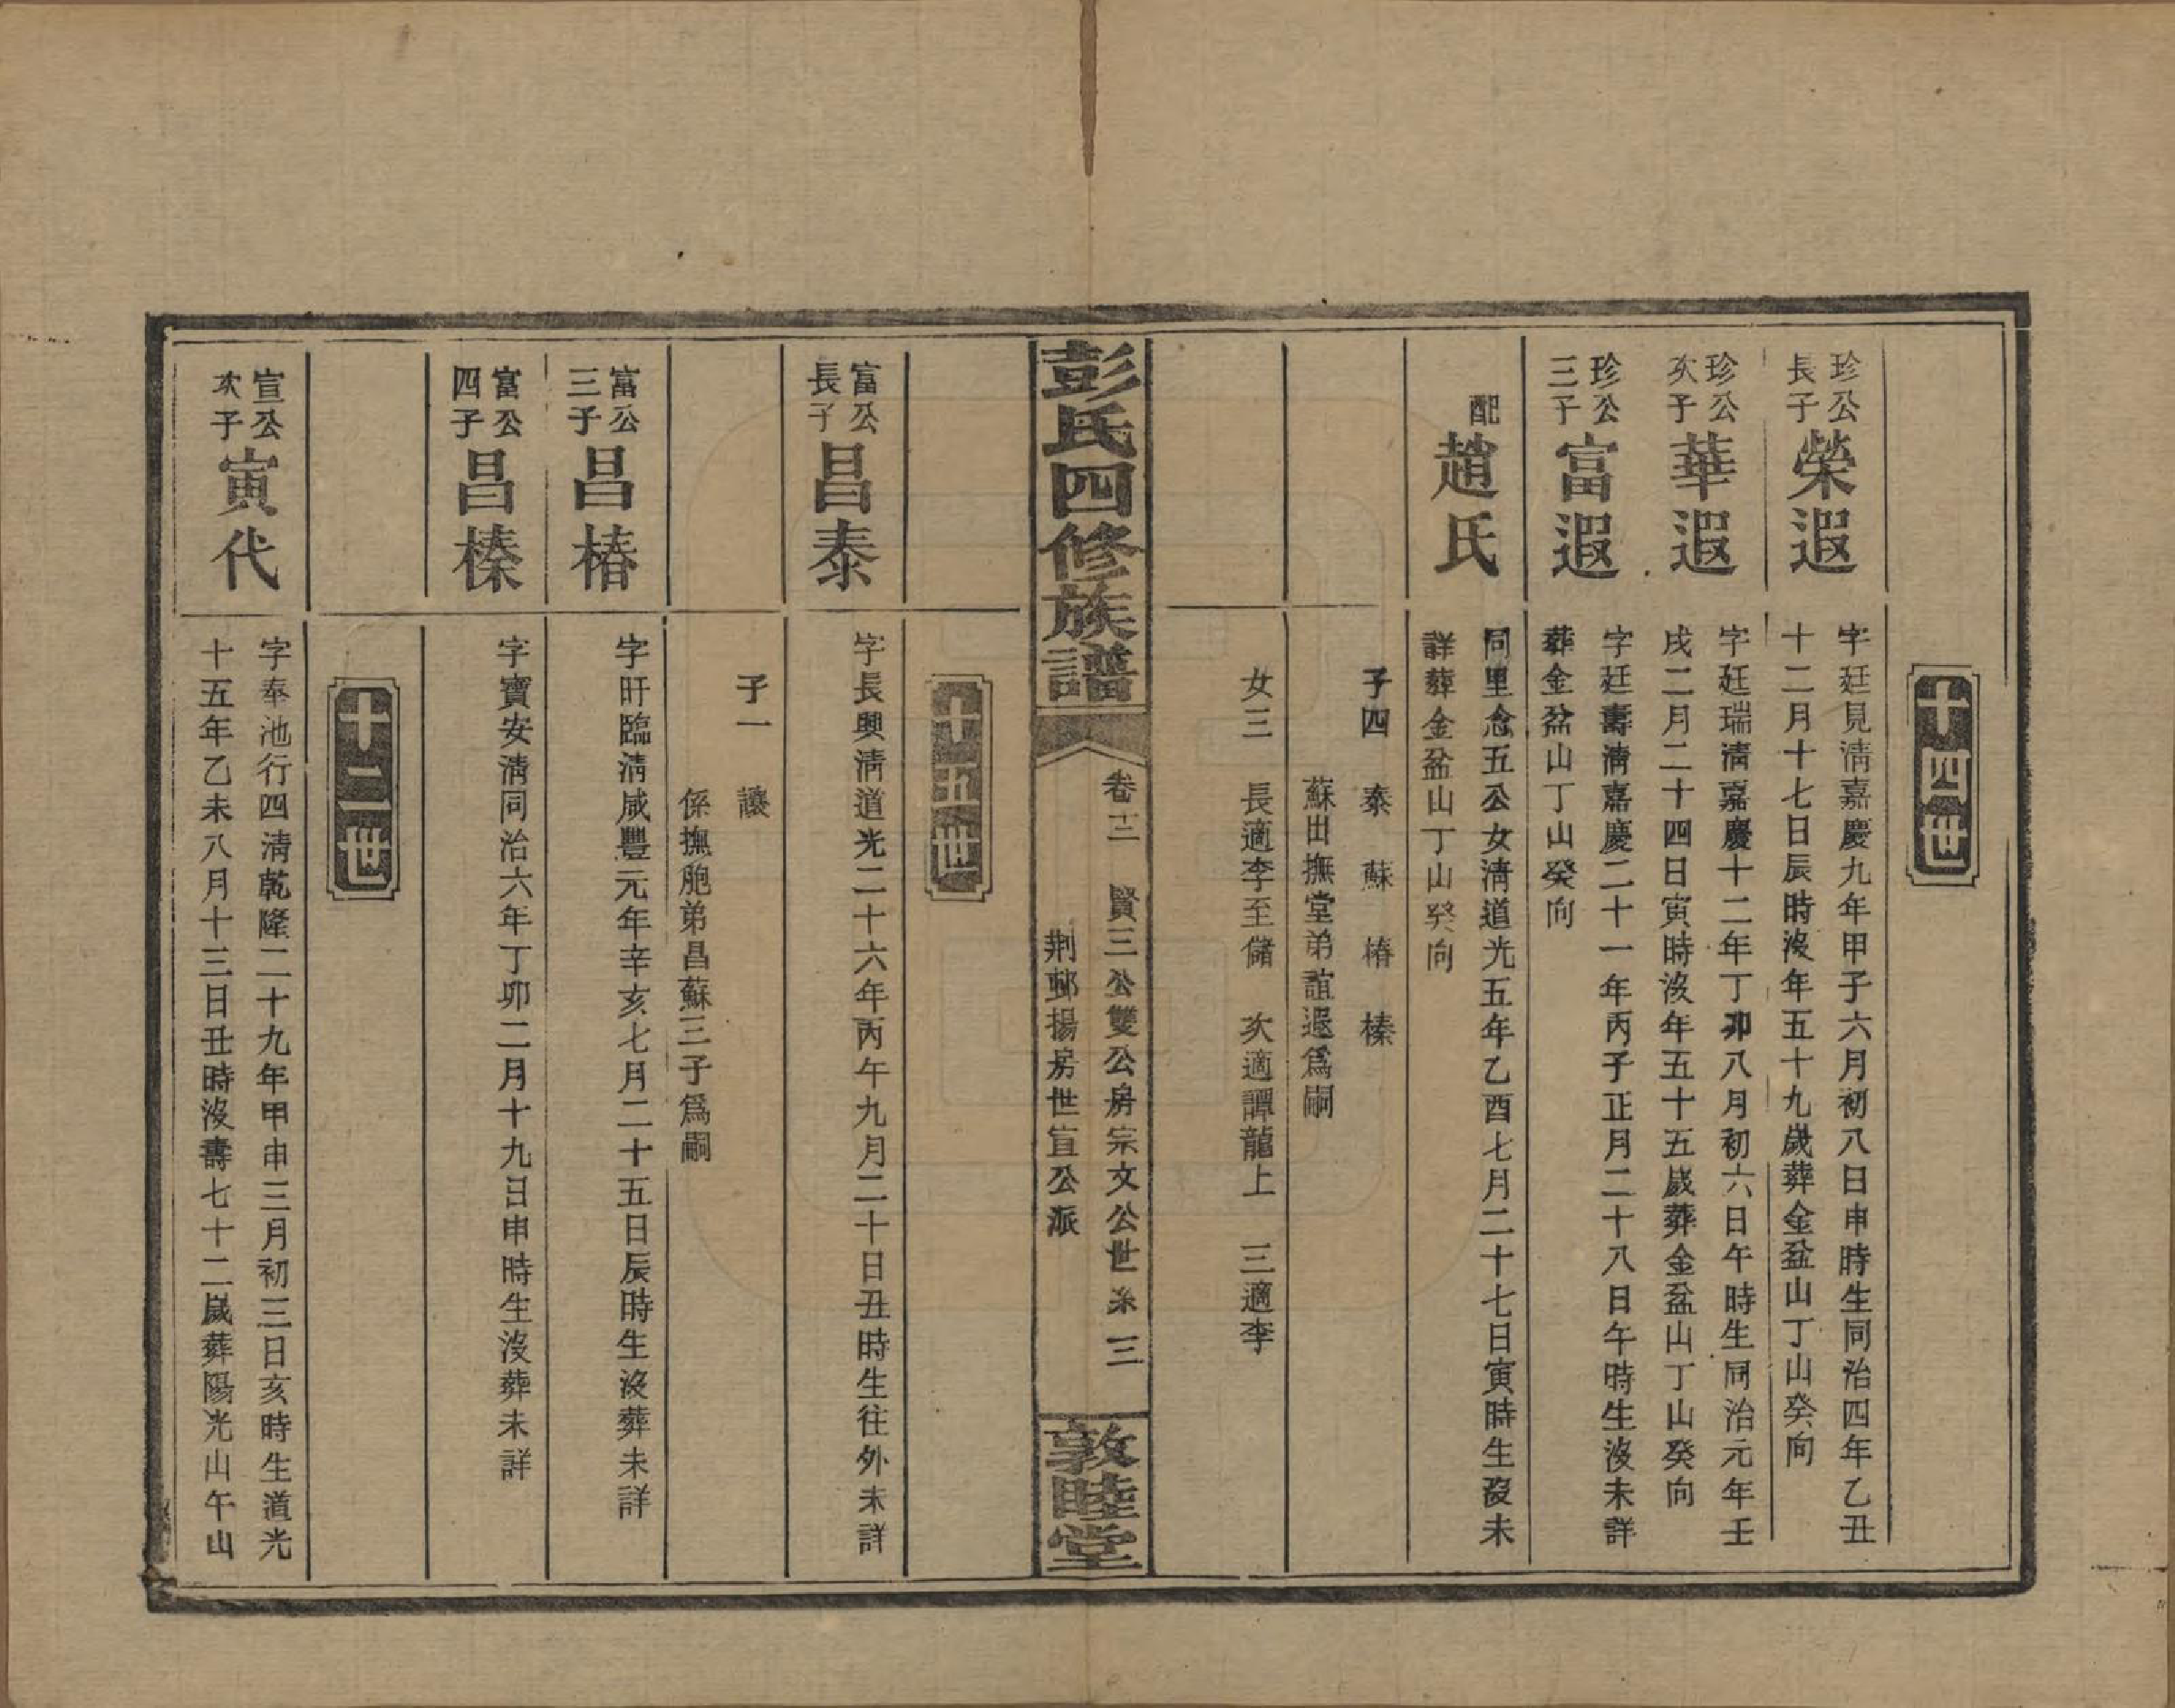 十四世
珍公
長子
榮遐
字廷見淸嘉慶九年甲子六月初八日申時生同治四年乙丑
十二月十七日辰時沒年五十九歲葬金盆山丁山癸向
珍公
次子
華遐
字廷瑞淸嘉慶十二年丁卯八月初六日午時生同治元年壬
戌二月二十四日寅時沒年五十五歲葬金盆山丁山癸向
珍公
三子
富遐
字廷壽淸嘉慶二十一年丙子正月二十八日午時生沒未詳
葬金盆山丁山癸向
配
趙氏
同里念五公女淸道光五年乙酉七月二十七日寅時生沒未
詳葬金盆山丁山癸向
子四　泰　蘇　椿　榛
蘇出撫堂弟誼遐爲嗣
女三　長適李至儲　次適譚龍上　三適李
彭氏四修族譜
卷三　賢三公雙公房宗文公世系　三
荆邨揚房世宣公派
敦睦堂
十五世
富公
長子
昌泰
字長興淸道光二十六年丙午九月二十日丑時生往外未詳
子一　讓
係撫胞弟昌蘇三子爲嗣
富公
三子
昌椿
字旰臨淸咸豐元年辛亥七月二十五日辰時生沒葬未詳
富公
四子
昌榛
字寶安淸同治六年丁卯二月十九日申時生沒葬未詳
十二世
宣公
次子
寅代
字奉池行四淸乾隆二十九年甲申三月初三日亥時生道光
十五年乙未八月十三日丑時沒壽七十二歲葬陽光山午山